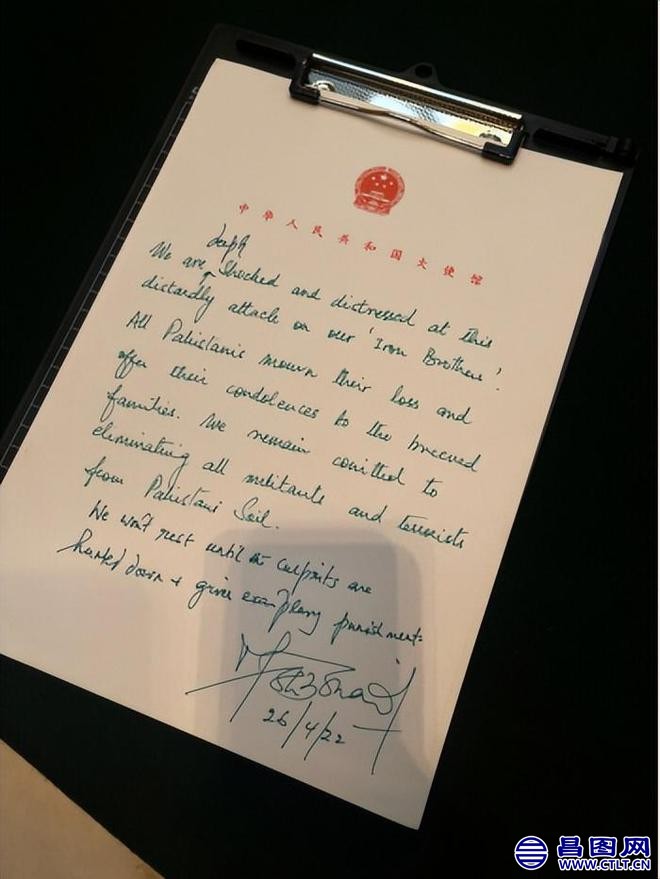 中华人民共和国大使馆
deeply
We are shocked and distressed at this
distardly attack on our 'Iron Brothers'.
All Pakistanis mourn their loss and
offer their condolences to the
families. We remain comitted to
eliminating all militants and terrorists
from Pakistani Soil.
We won't rest until culprits are
hunted down + given punishment.
26/4/22
昌图网
WWW.CTLT.CN